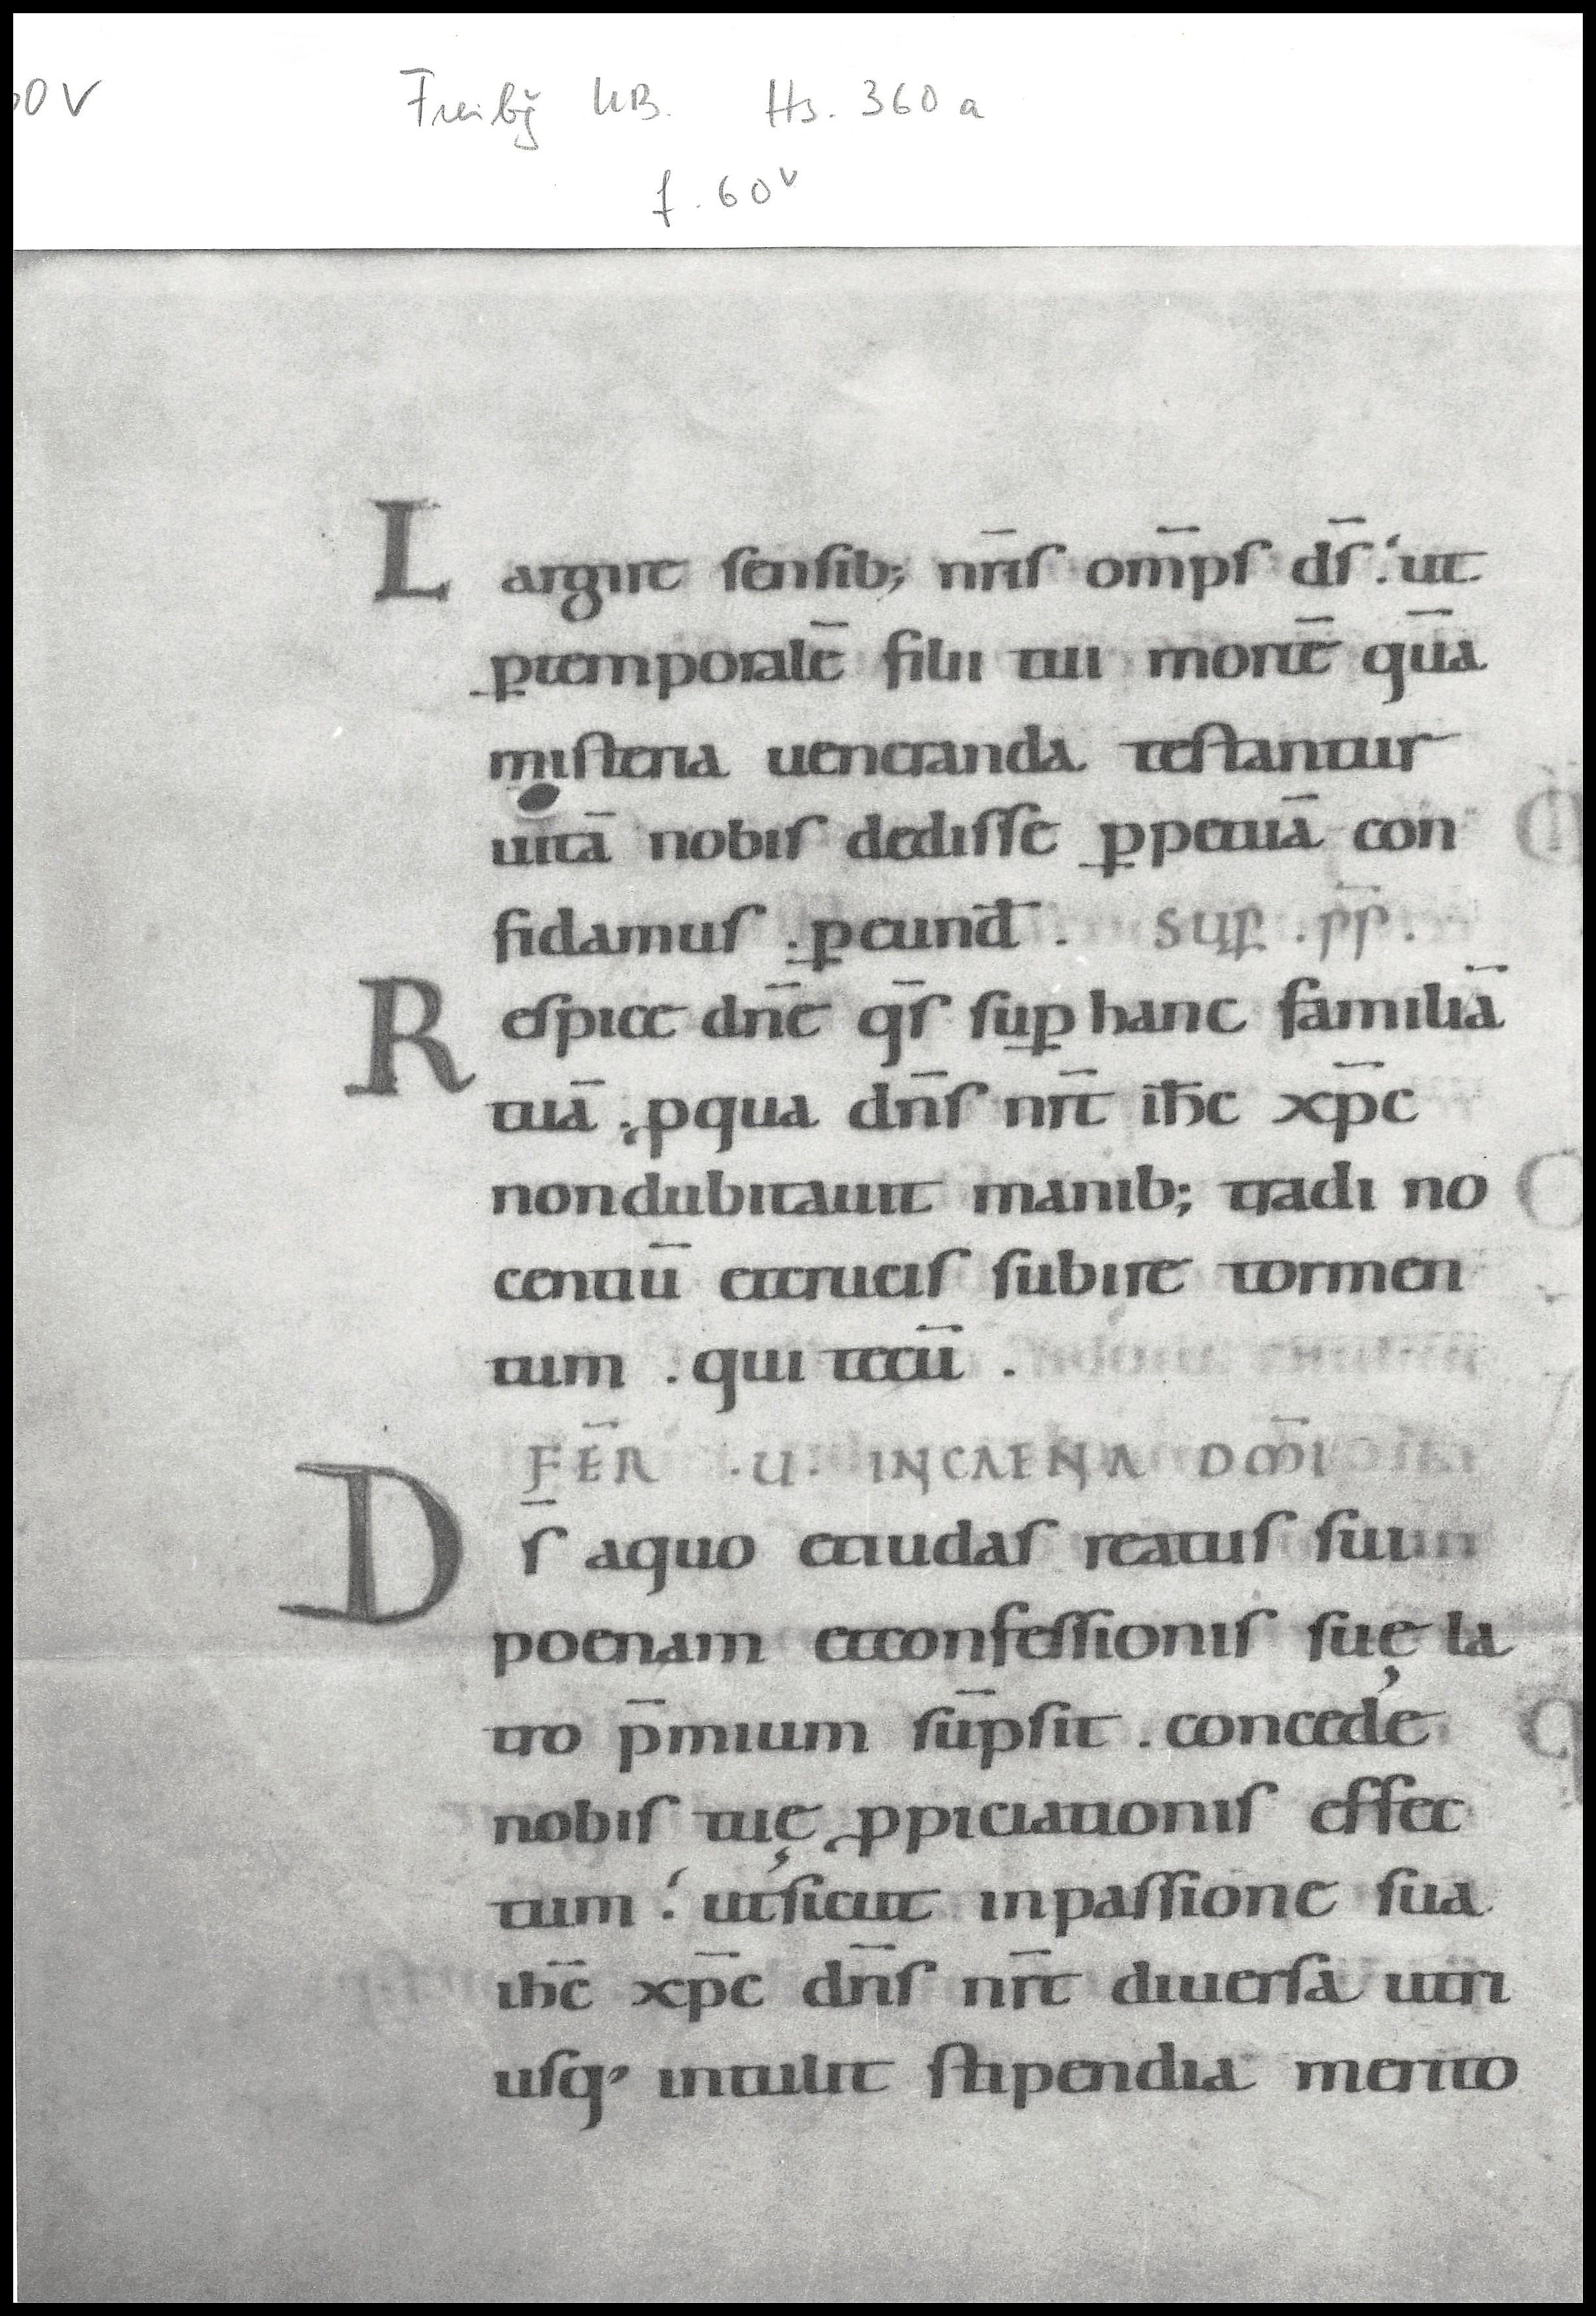 0V
Freibg UB. Hs. 360 a
f. 60v
Largire sensib; nr̄is om̄ps d̄s ut
ꝑtemporalē filii tui mortē quā
misteria ueneranda testantur
uitā nobis dedisse ꝑpetuā con
fidamus . ꝑeund̄ . SUꝑ . p̄p .
Respice dn̄e q̄s suꝑ hanc familiā
tuā . ꝓqua dn̄s nr̄t ih̄c xp̄c
nondubitauit manib; tradi no
centiū etcrucis subire tormen
tum . qui tecū .
FĒR .U. INCAENA DOM̄I
Ds̄ aquo etiudas reatus sui
poenam etconfessionis suę la
tro p̄mium sūpsit . concede
nobis tuę ꝓpitiationis effec
tum utsicut inpassione sua
ih̄c xp̄c dn̄s nr̄t diuersa utri
usq, intulit stipendia merito